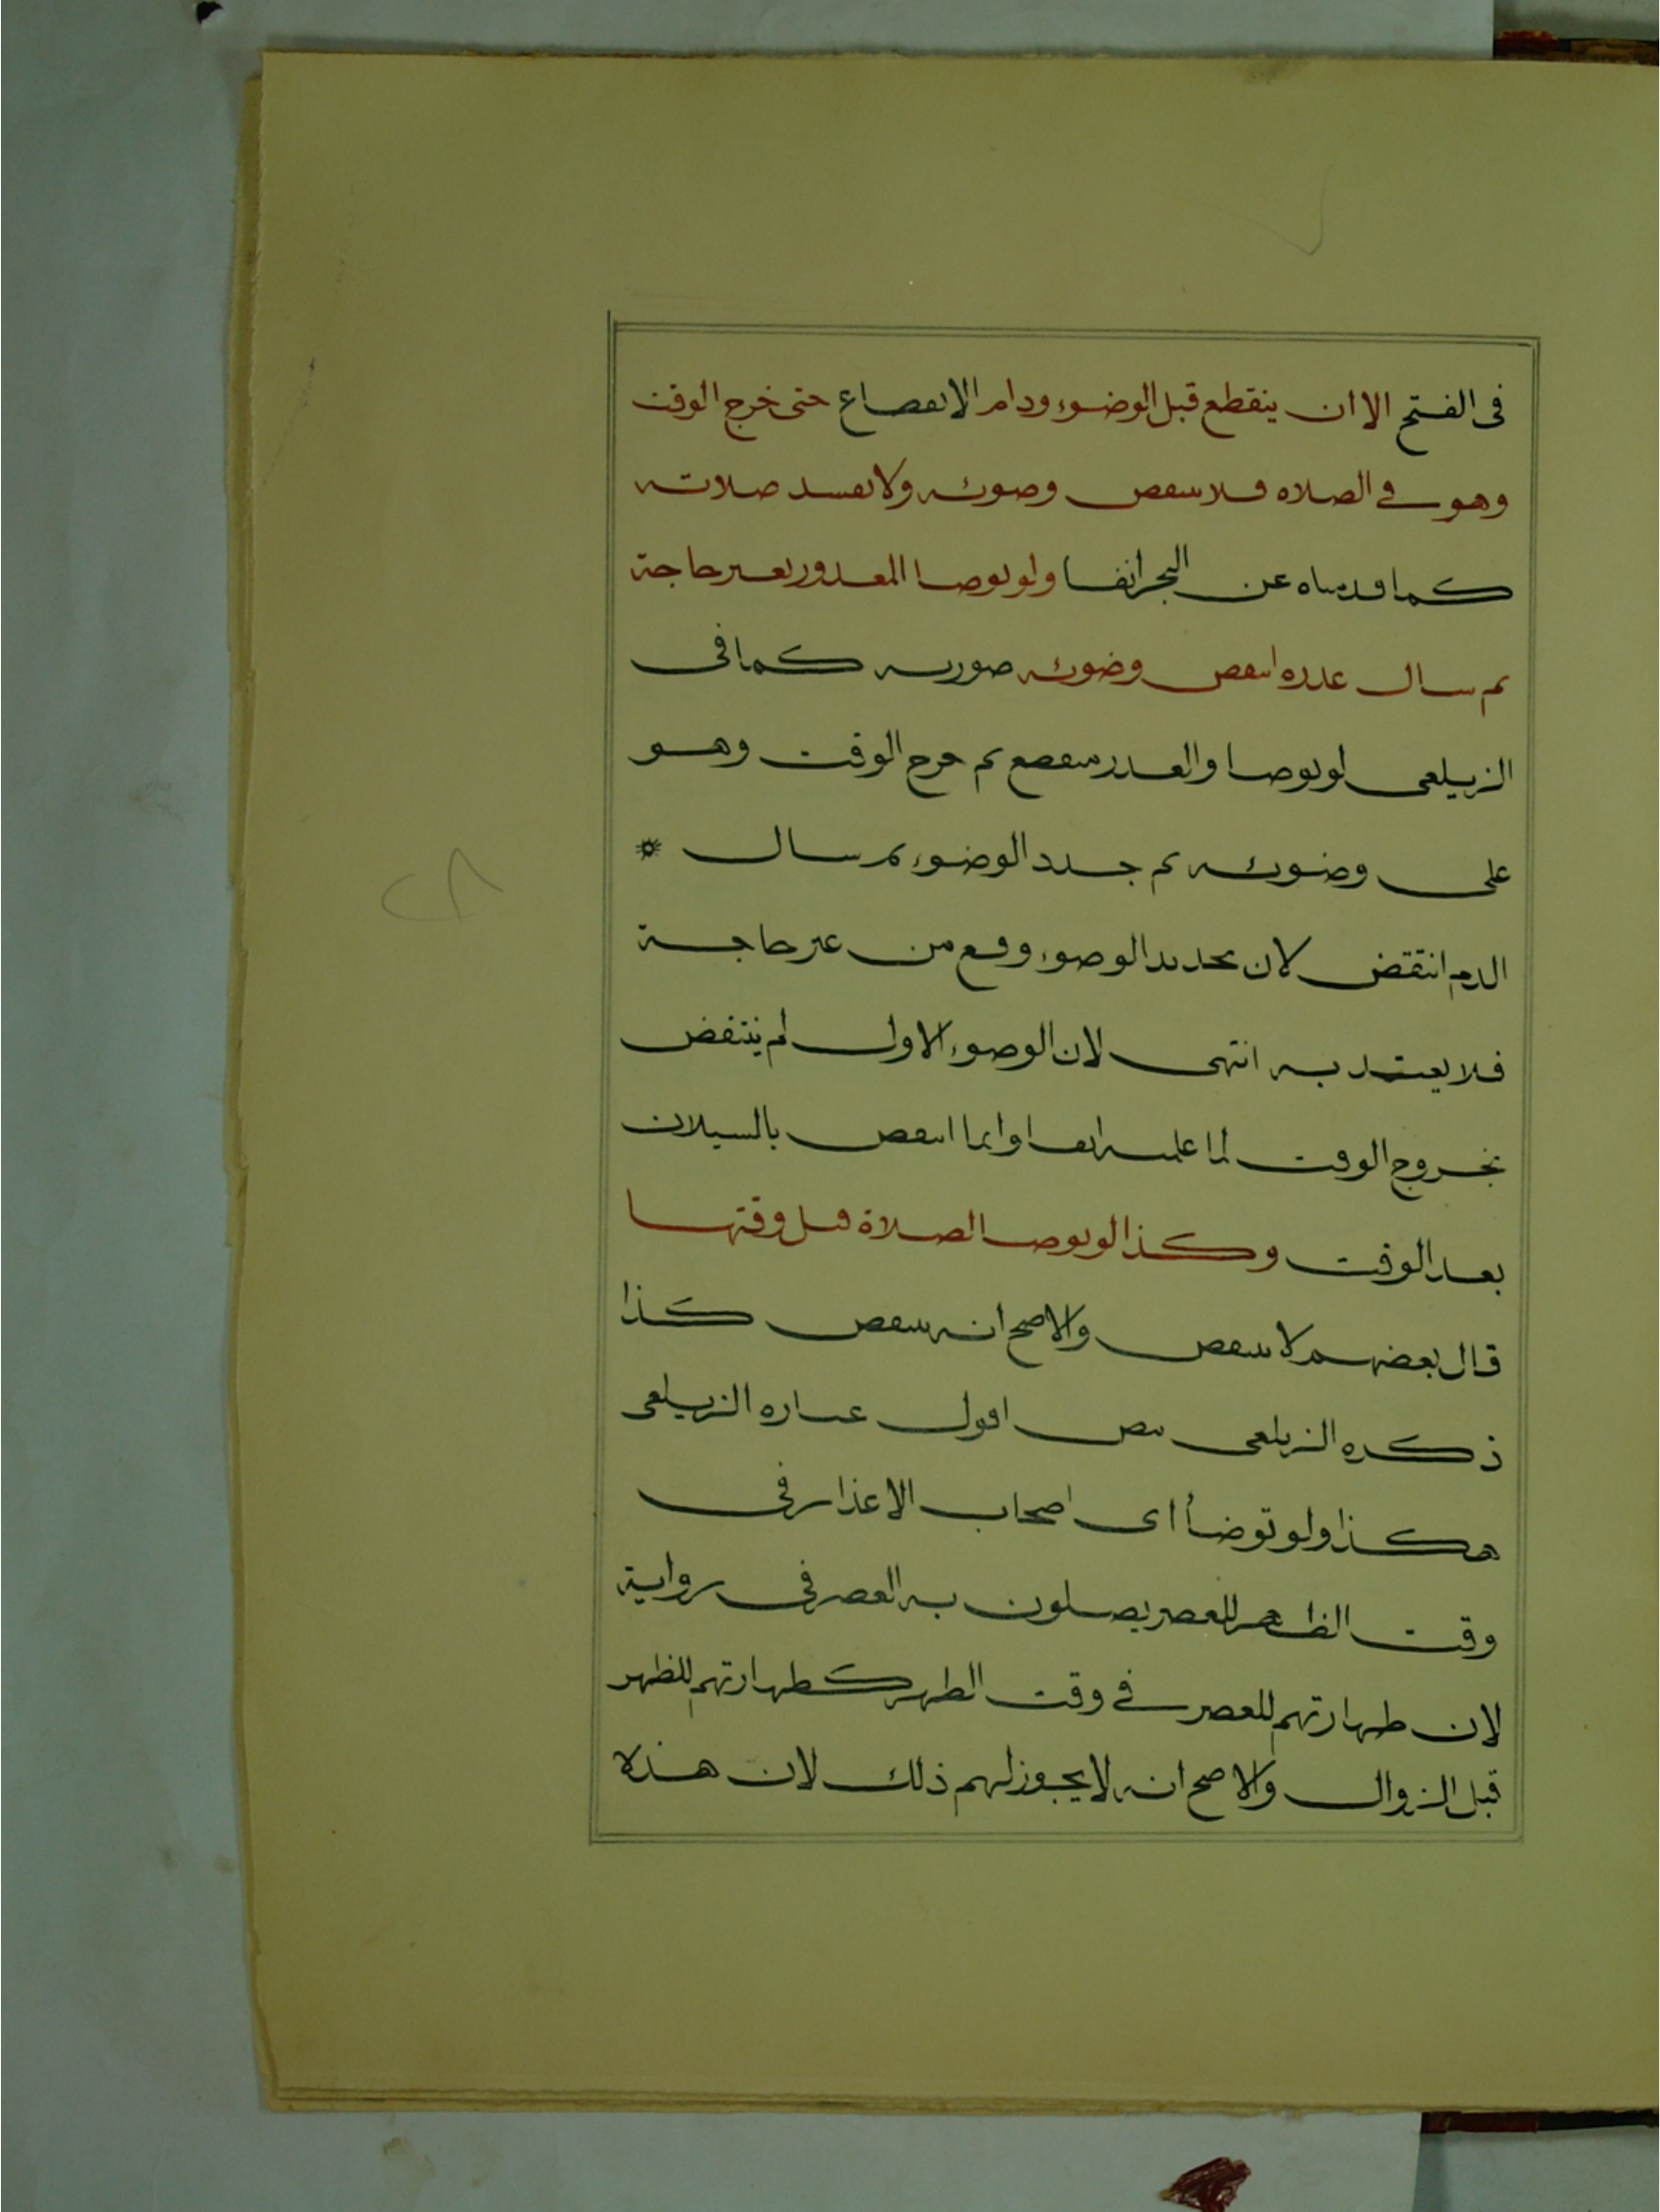 فى الفتح الا ان ينقطع قبل الوضوء ودام الانقطاع حتى خرج الوقت
وهو في الصلاه فلا ينتقض وضوئه ولا تفسد صلاته
كما قدمناه عن البحر انفا ولو توضا المعذور لغير حاجة
ثم سال عذره انتقض وضوئه صورته كما فى
الزيلعى لو توضا والعذر منقطع ثم خرج الوقت وهو
على وضوئه ثم جدد الوضوء ثم سال
الدم انتقض لان تجديد الوضوء وقع من غير حاجة
فلا يعتد به انتهى لان الوضوء الاول لم ينتقض
بخروج الوقت لما علمته انفا وانما انتقض بالسيلان
بعد الوقت وكذا لو توضا لصلاة قبل وقتها
قال بعضهم لا ينتقض والاصح انه ينتقض كذا
ذكره الزيلعى نص اقول عباره الزيلعى
هكذا ولو توضأ اى اصحاب الاعذار فى
وقت الظهر للعصر يصلون به العصر فى رواية
لان طهارتهم للعصر في وقت الظهر كطهارتهم للظهر
قبل الزوال والاصح انه لا يجوز لهم ذلك لان هذه